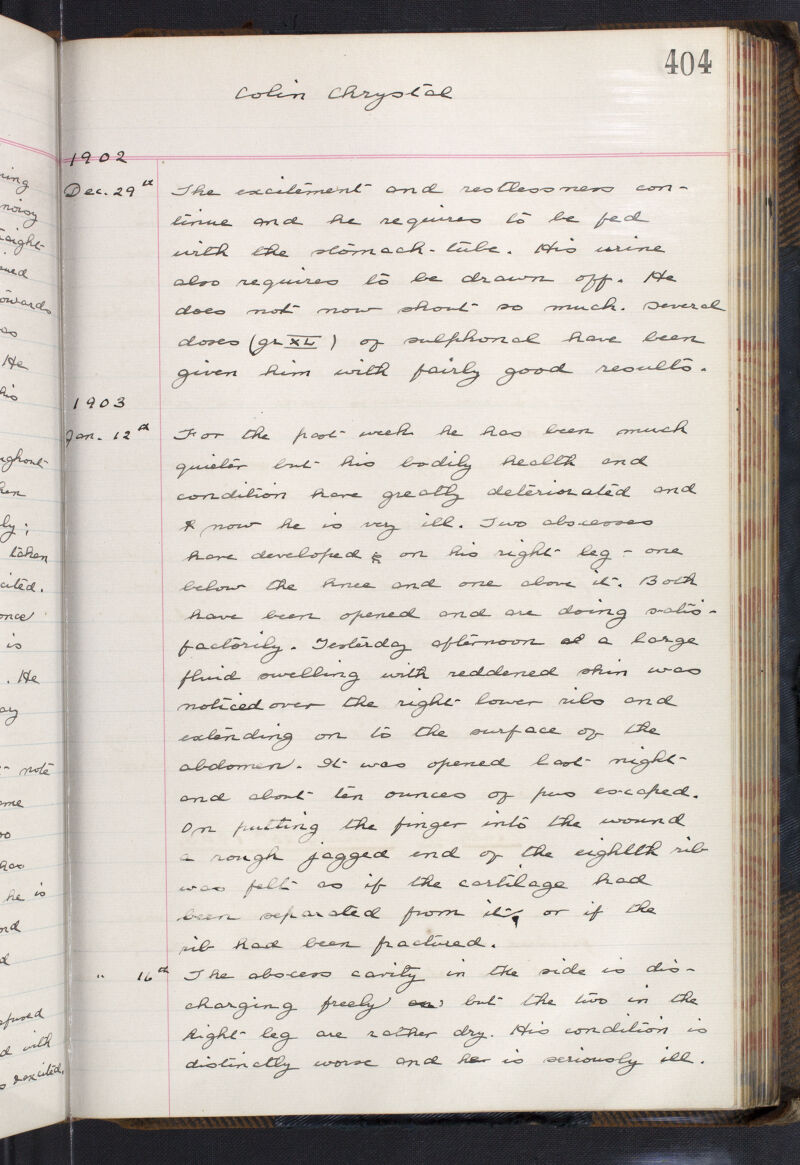 404
Colin Chrystal
1902
Dec. 29th The excitement and restlessness con-
tinue and he requires to be fed
with the stomach-tube. His urine
also requires to be drawn off. He
does not now shout so much. Several
doses (gr XL) of sulphonal have been
given him with fairly good results.
1903
Jan. 12th For the past week he has been much
quieter but his bodily health and
condition have greatly deteriorated and
now he is very ill. Two abscesses
have developed on his right leg - one
below the knee and one above it. Both
have been opened and are doing satis-
factorily. Yesterday afternoon a large
fluid swelling with reddened skin was
noticed over the right lower ribs and
extending on to the surface of the
abdomen. It was opened last night
and about ten ounces of pus escaped.
On putting the finger into the wound
a rough jagged end of the eighth rib
was felt as if the cartilage had
been separated from it, or if the
rib had been fractured.
" 16th The abscess cavity in the side is dis-
charging freely but the two in the
Right leg are rather dry. His condition is
distinctly worse and he is seriously ill.
noisy
owards
as
He
his
ly;
taken
cited.
once
is
. He
- note
has
he is
with
excited.